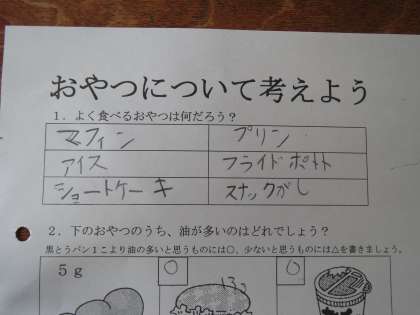 おやつについて考えよう
1．よく食べるおやつは何だろう？
マフィン　プリン
アイス　フライドポテト
ショートケーキ　スナックがし
2．下のおやつのうち、油が多いのはどれでしょう？
黒とうパン1こより油の多いと思うものには○、少ないと思うものには△を書きましょう。
5g ○ ○